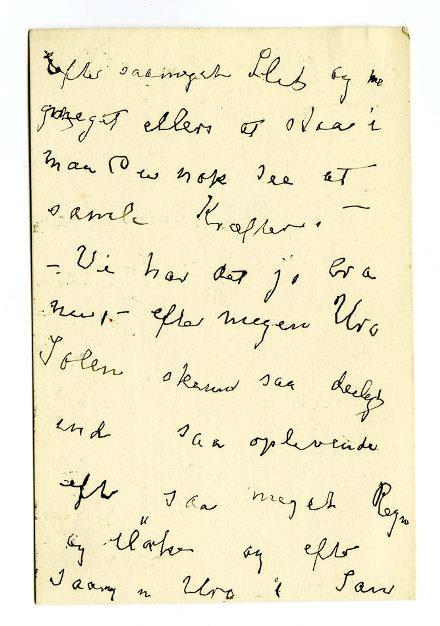 efter saameget Slit og
meget ellers at staa i
maa Du nok see at
samle Kræfter. —
– Vi har det jo bra
nu, – efter megen Uro
Solen skinner saa deilig
ind saa oplivende
efter saa meget Regn
og Mörke og efter
saamegen Uro i Sand